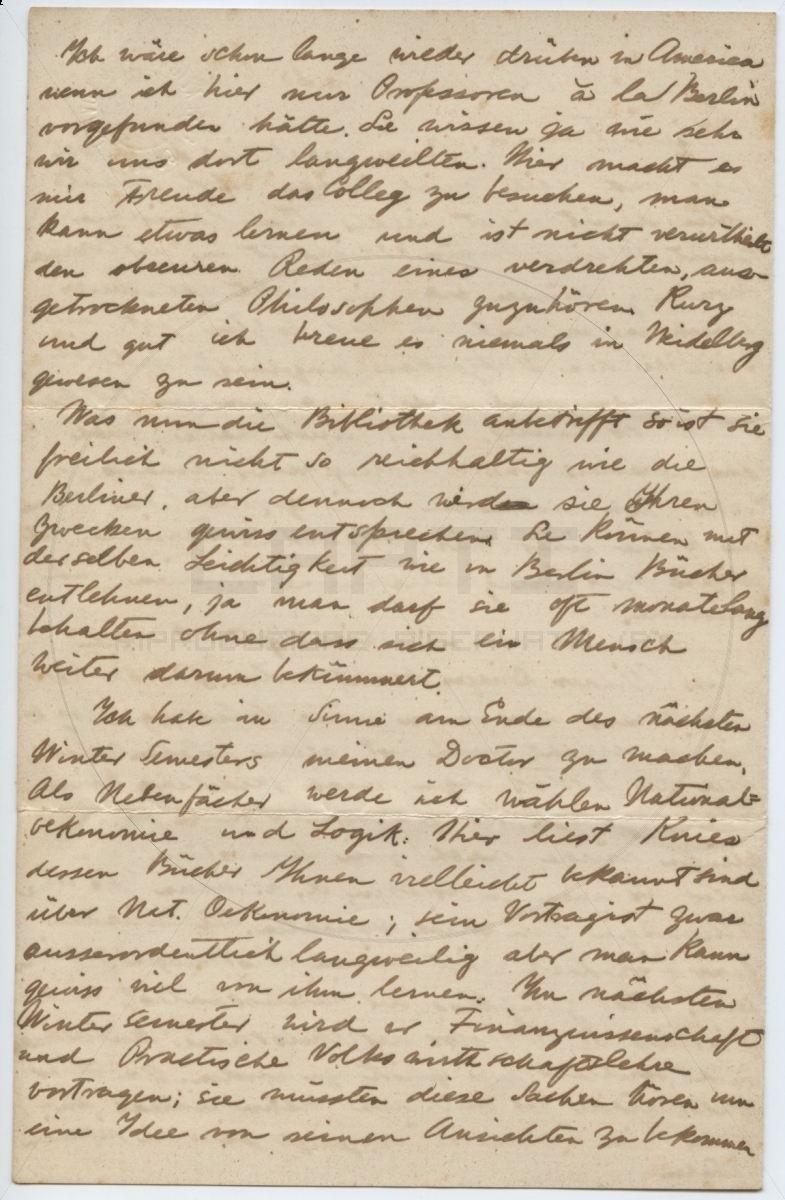 Ich wäre schon lange wieder drüben in America
wenn ich hier nur Professoren à la Berlin
vorgefunden hätte. Sie wissen ja wie sehr
wir uns dort langweilten. Hier macht es
mir Freude das Colleg zu besuchen, man
kann etwas lernen und ist nicht verurtheilt
den obscuren Reden eines verdrehten, aus-
getrockneten Philosophen zuzuhören. Kurz
und gut ich breue es niemals in Heidelberg
gewesen zu sein.
Was nun die Bibliothek anbetrifft so ist sie
freilich nicht so reichhaltig wie die
Berliner, aber dennoch wird sie Ihren
Zwecken gewiss entsprechen. Sie können mit
derselben Leichtigkeit wie in Berlin Bücher
entlehnen, ja man darf sie oft monatelang
behalten ohne dass sich ein Mensch
weiter darum bekümmert.
Ich habe im Sinne am Ende des nächsten
Winter Semesters meinen Doctor zu machen.
Als Nebenfächer werde ich wählen National=
oekonomie und Logik. Hier liest Knies
dessen Bücher Ihnen vielleicht bekannt sind
über Nat. Oekonomie; sein Vortrag ist zwar
ausserordentlich langweilig aber man kann
gewiss viel von ihm lernen. Im nächsten
Winter semester wird er Finanzwissenschaft
und Practische Volkswirthschaftslehre
vortragen; sie müssten diese Sachen hören um
eine Idee von seinen Ansichten zu bekommen